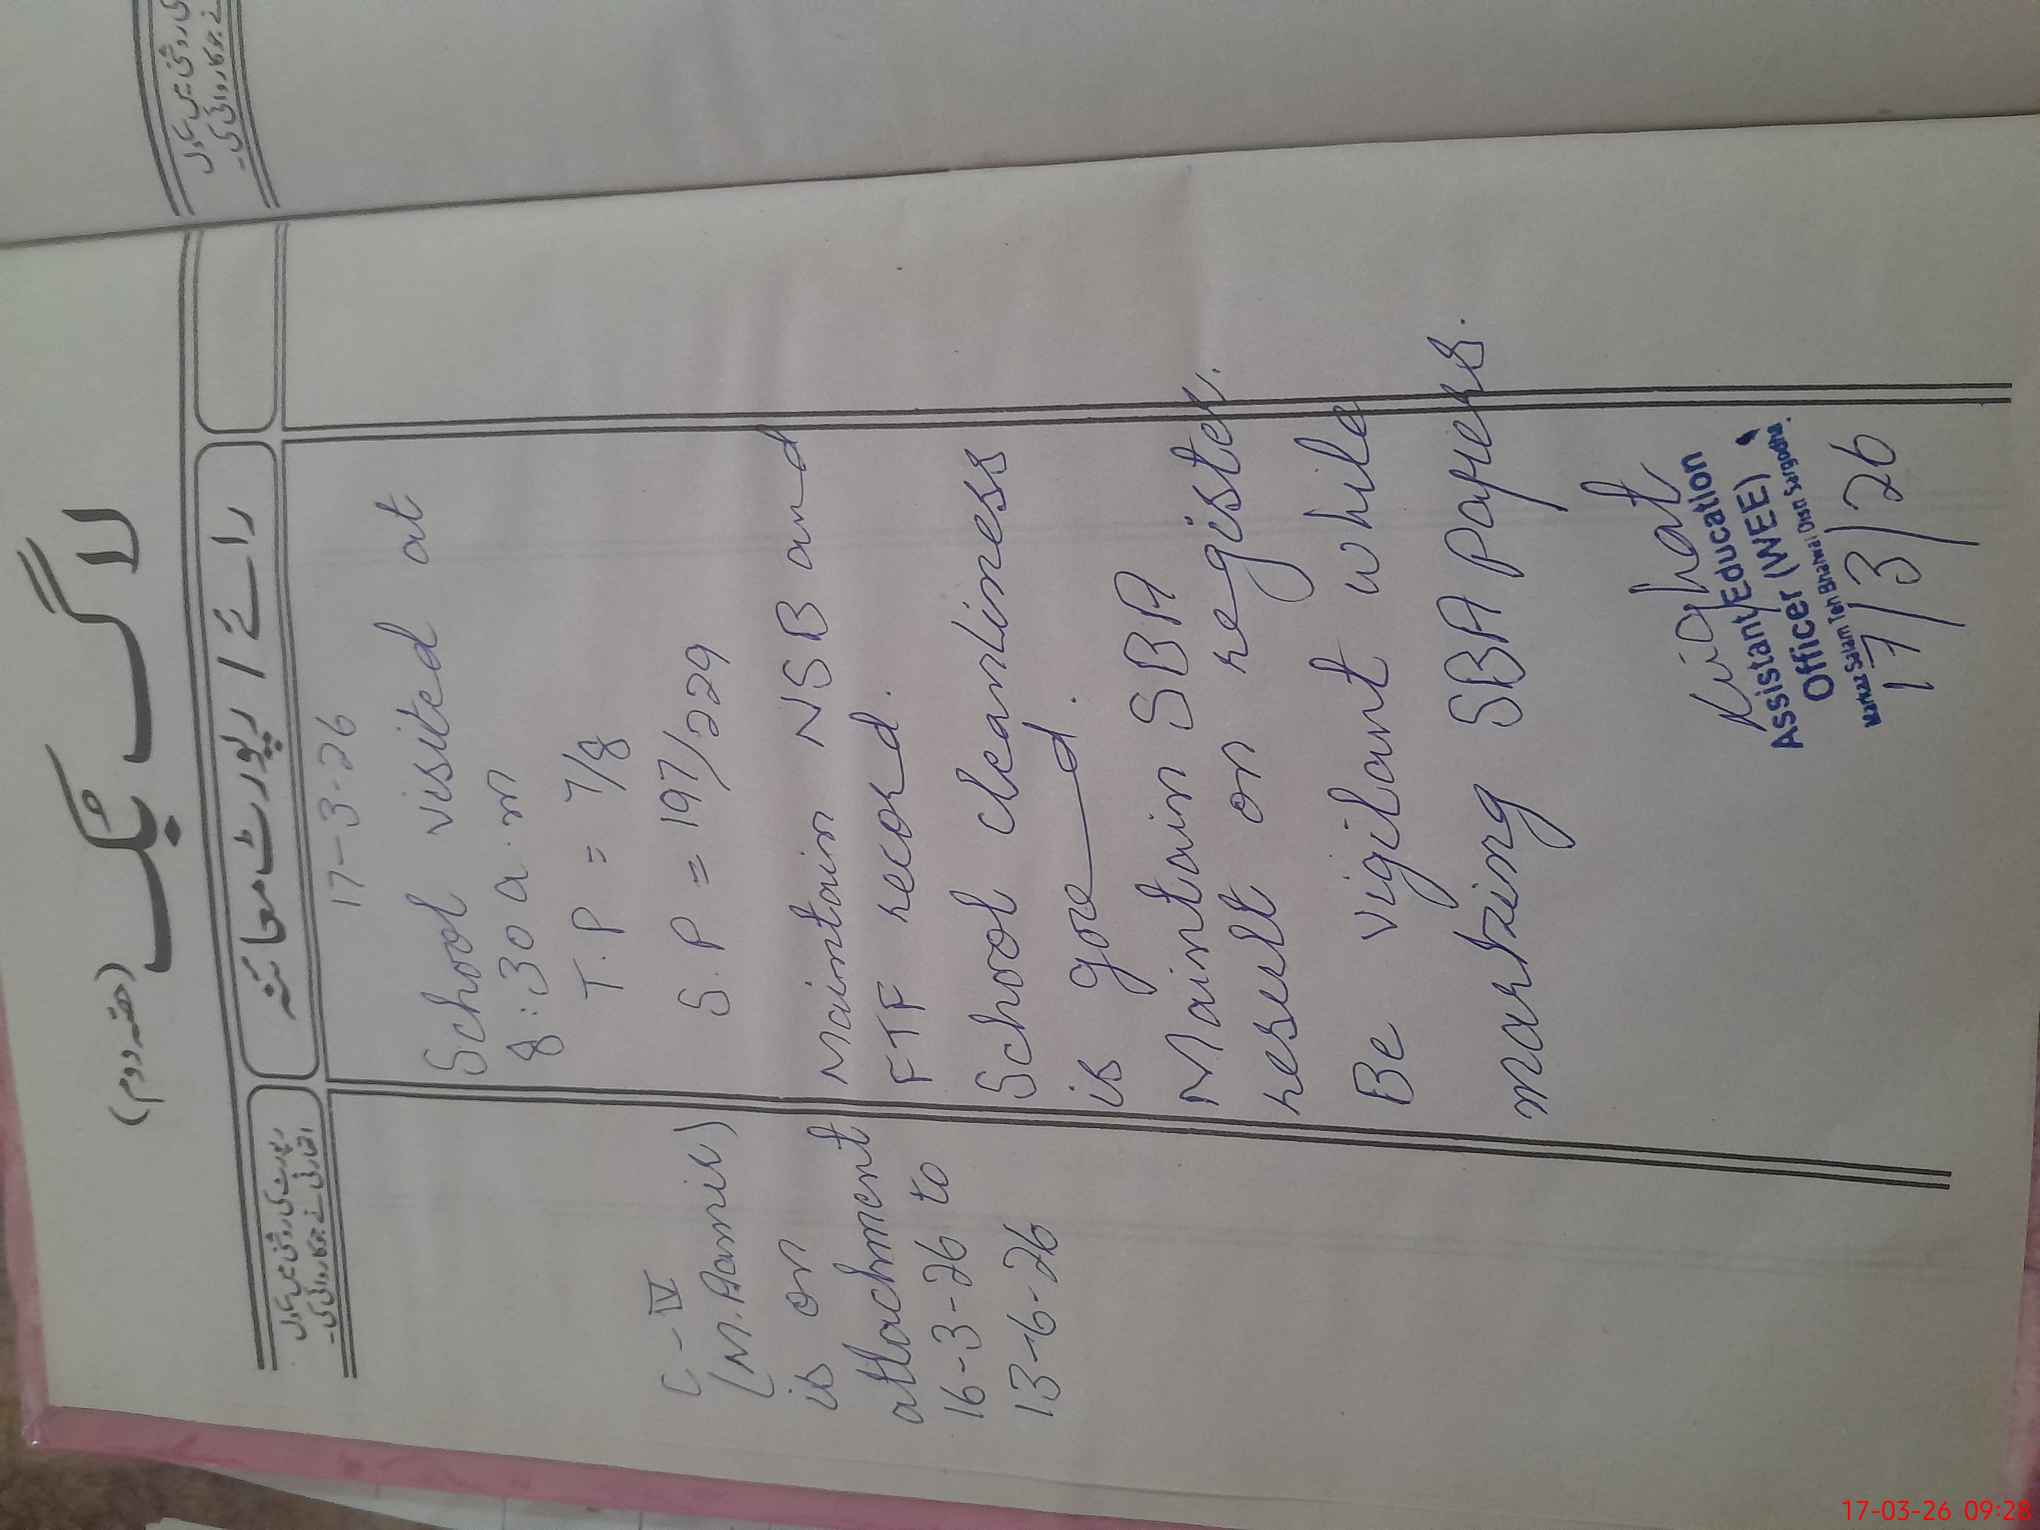 لاگ بک
(حصہ دوم)
رائے / رپورٹ معائنہ
رپورٹ کی روشنی میں سکول
اتھارٹی نے جو کارروائی کی۔
17-3-26
School visited at
8:30 a.m
T.P = 7/8
S.P = 197/229
Maintain NSB and
FTF record.
School cleanliness
is good.
Maintain SBA
result on register.
Be vigilant while
marking SBA papers.
C-IV
(M.Aamir)
is on
attachment
16-3-26 to
13-6-26
Assistant Education
Officer (WEE)
Markaz Salam Teh Bhalwal Distt Sargodha.
17/3/26
ی روشنی میں سکول
نے جو کارروائی کی۔
17-03-26 09:28